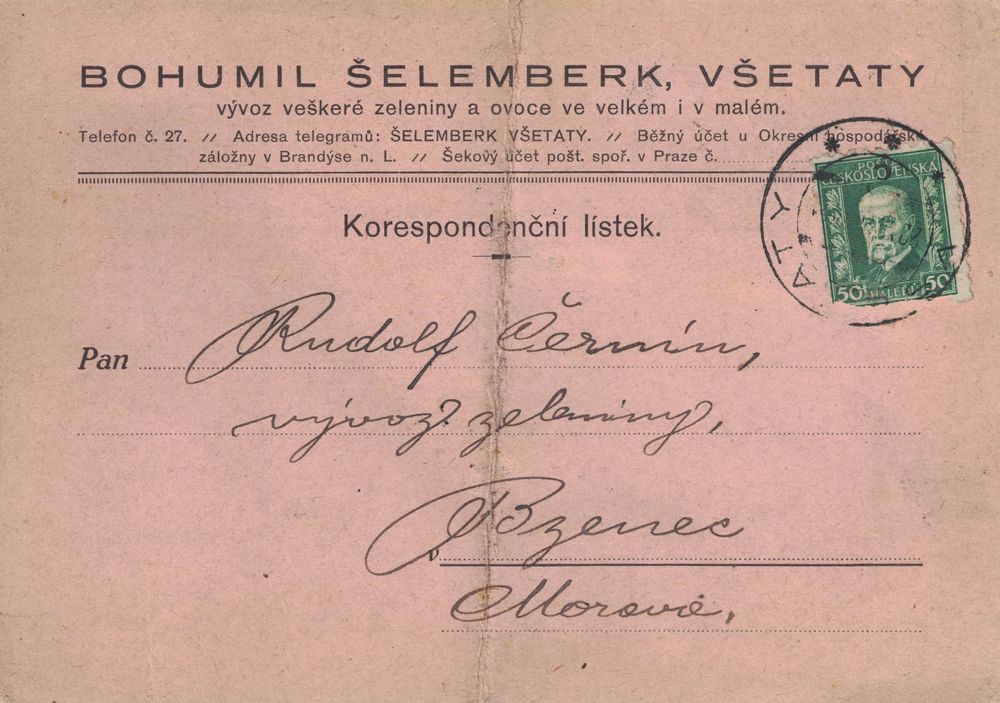 BOHUMIL ŠELEMBERK, VŠETATY
vývoz veškeré zeleniny a ovoce ve velkém i v malém.
Telefon č. 27. // Adresa telegramů: ŠELEMBERK VŠETATY. // Běžný účet u Okresní hospodářské
záložny v Brandýse n. L. // Šekový účet pošt. spoř. v Praze č.
POŠTA
ČESKOSLOVENSKÁ
50 HALÉŘŮ 50
ATY
Korespondenční lístek.
Pan Rudolf Černín,
vývoz zeleniny,
v Bzenec
Morava,